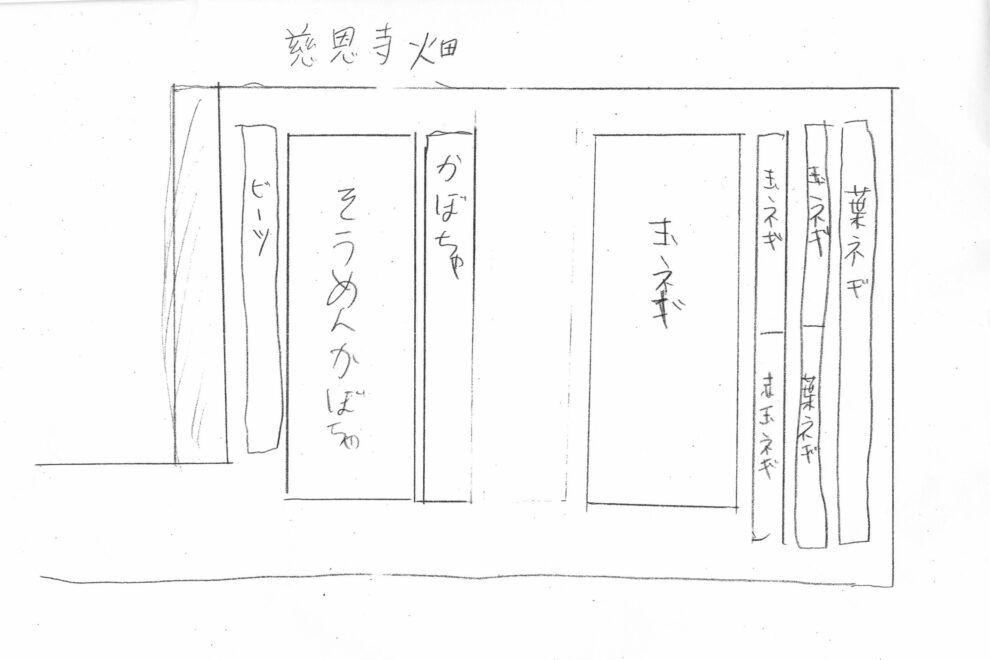 慈恩寺畑
ビーツ
そうめんかぼちゃ
かぼちゃ
玉ネギ
玉ネギ
赤玉ネギ
玉ネギ
葉ネギ
葉ネギ